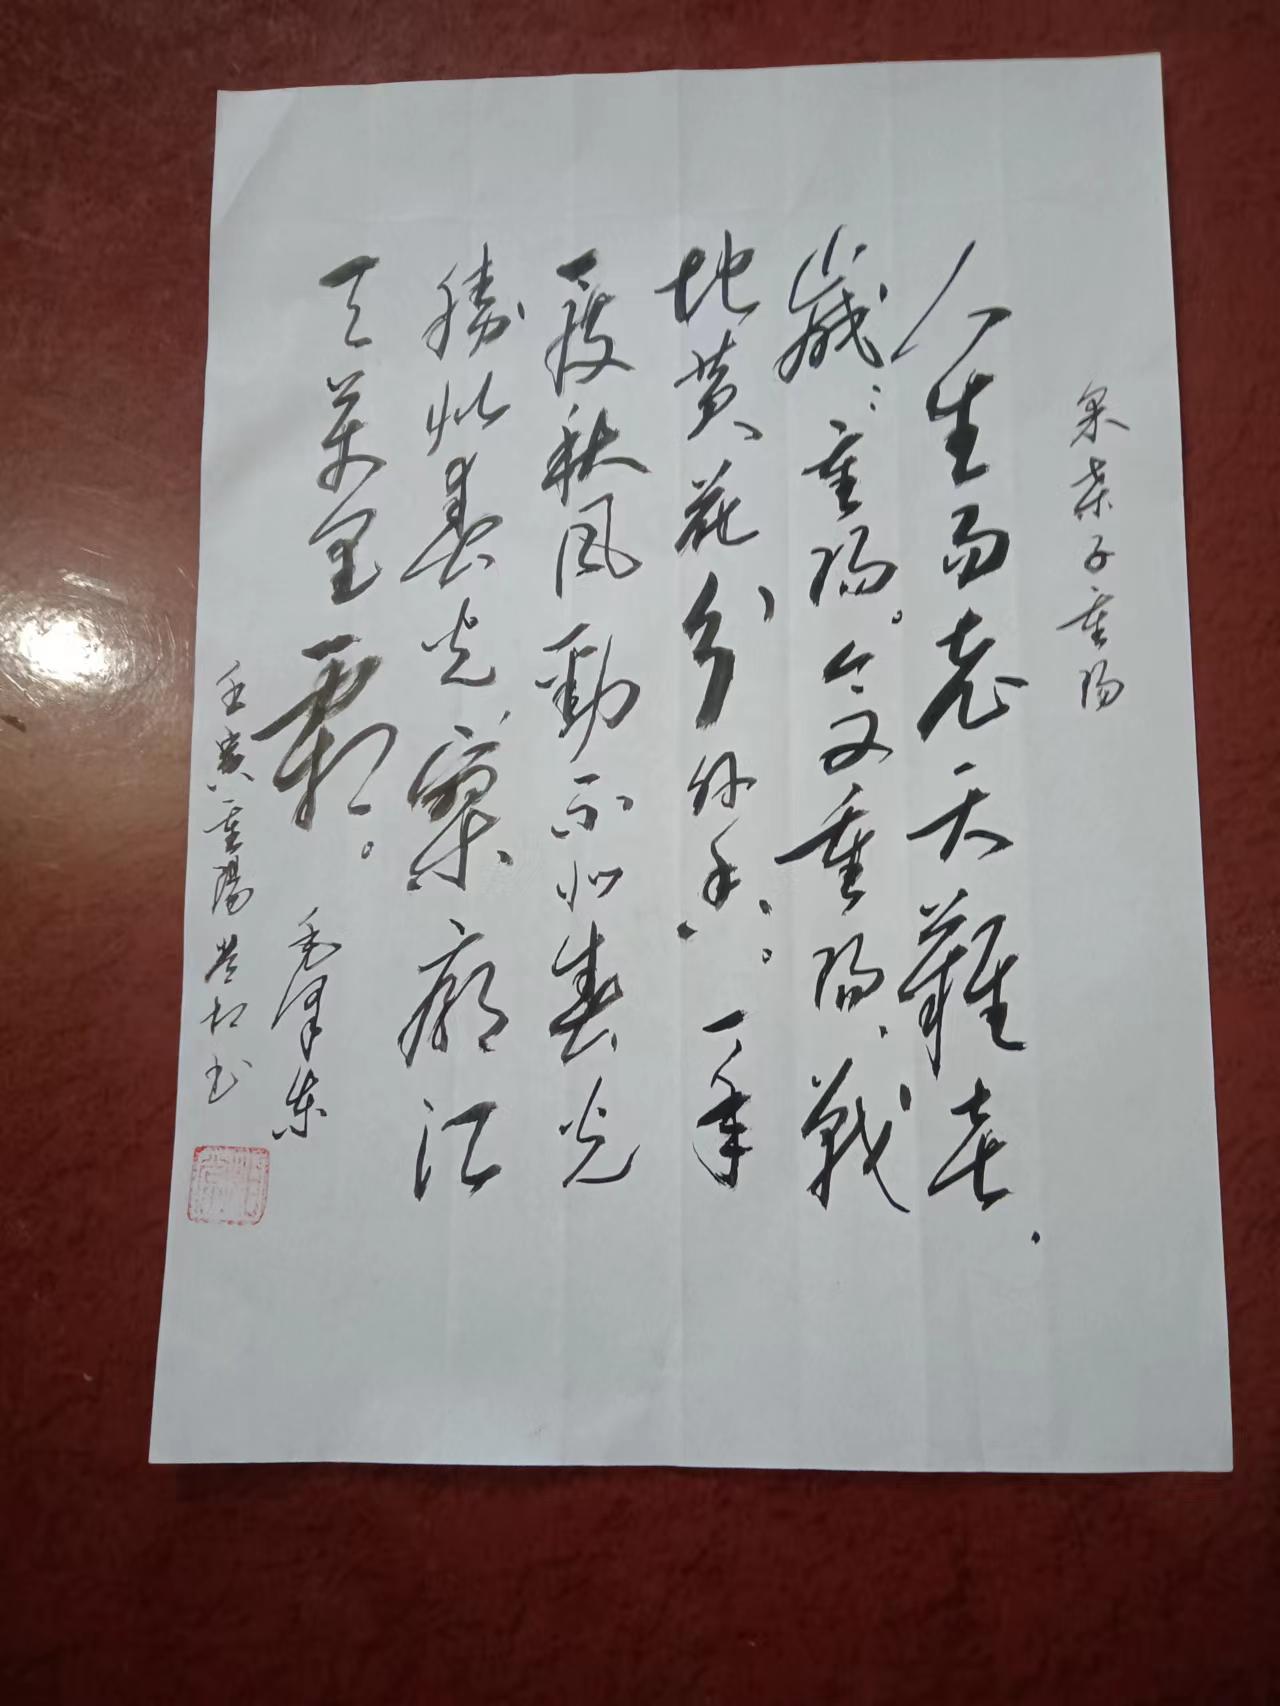 采桑子重阳
人生易老天難老、
歲歲重陽。今又重陽、戰
地黄花分外香。一年
一度秋风勁不似春光
勝似春光寥廓江
天萬里霜。
毛泽东
壬寅重陽 书